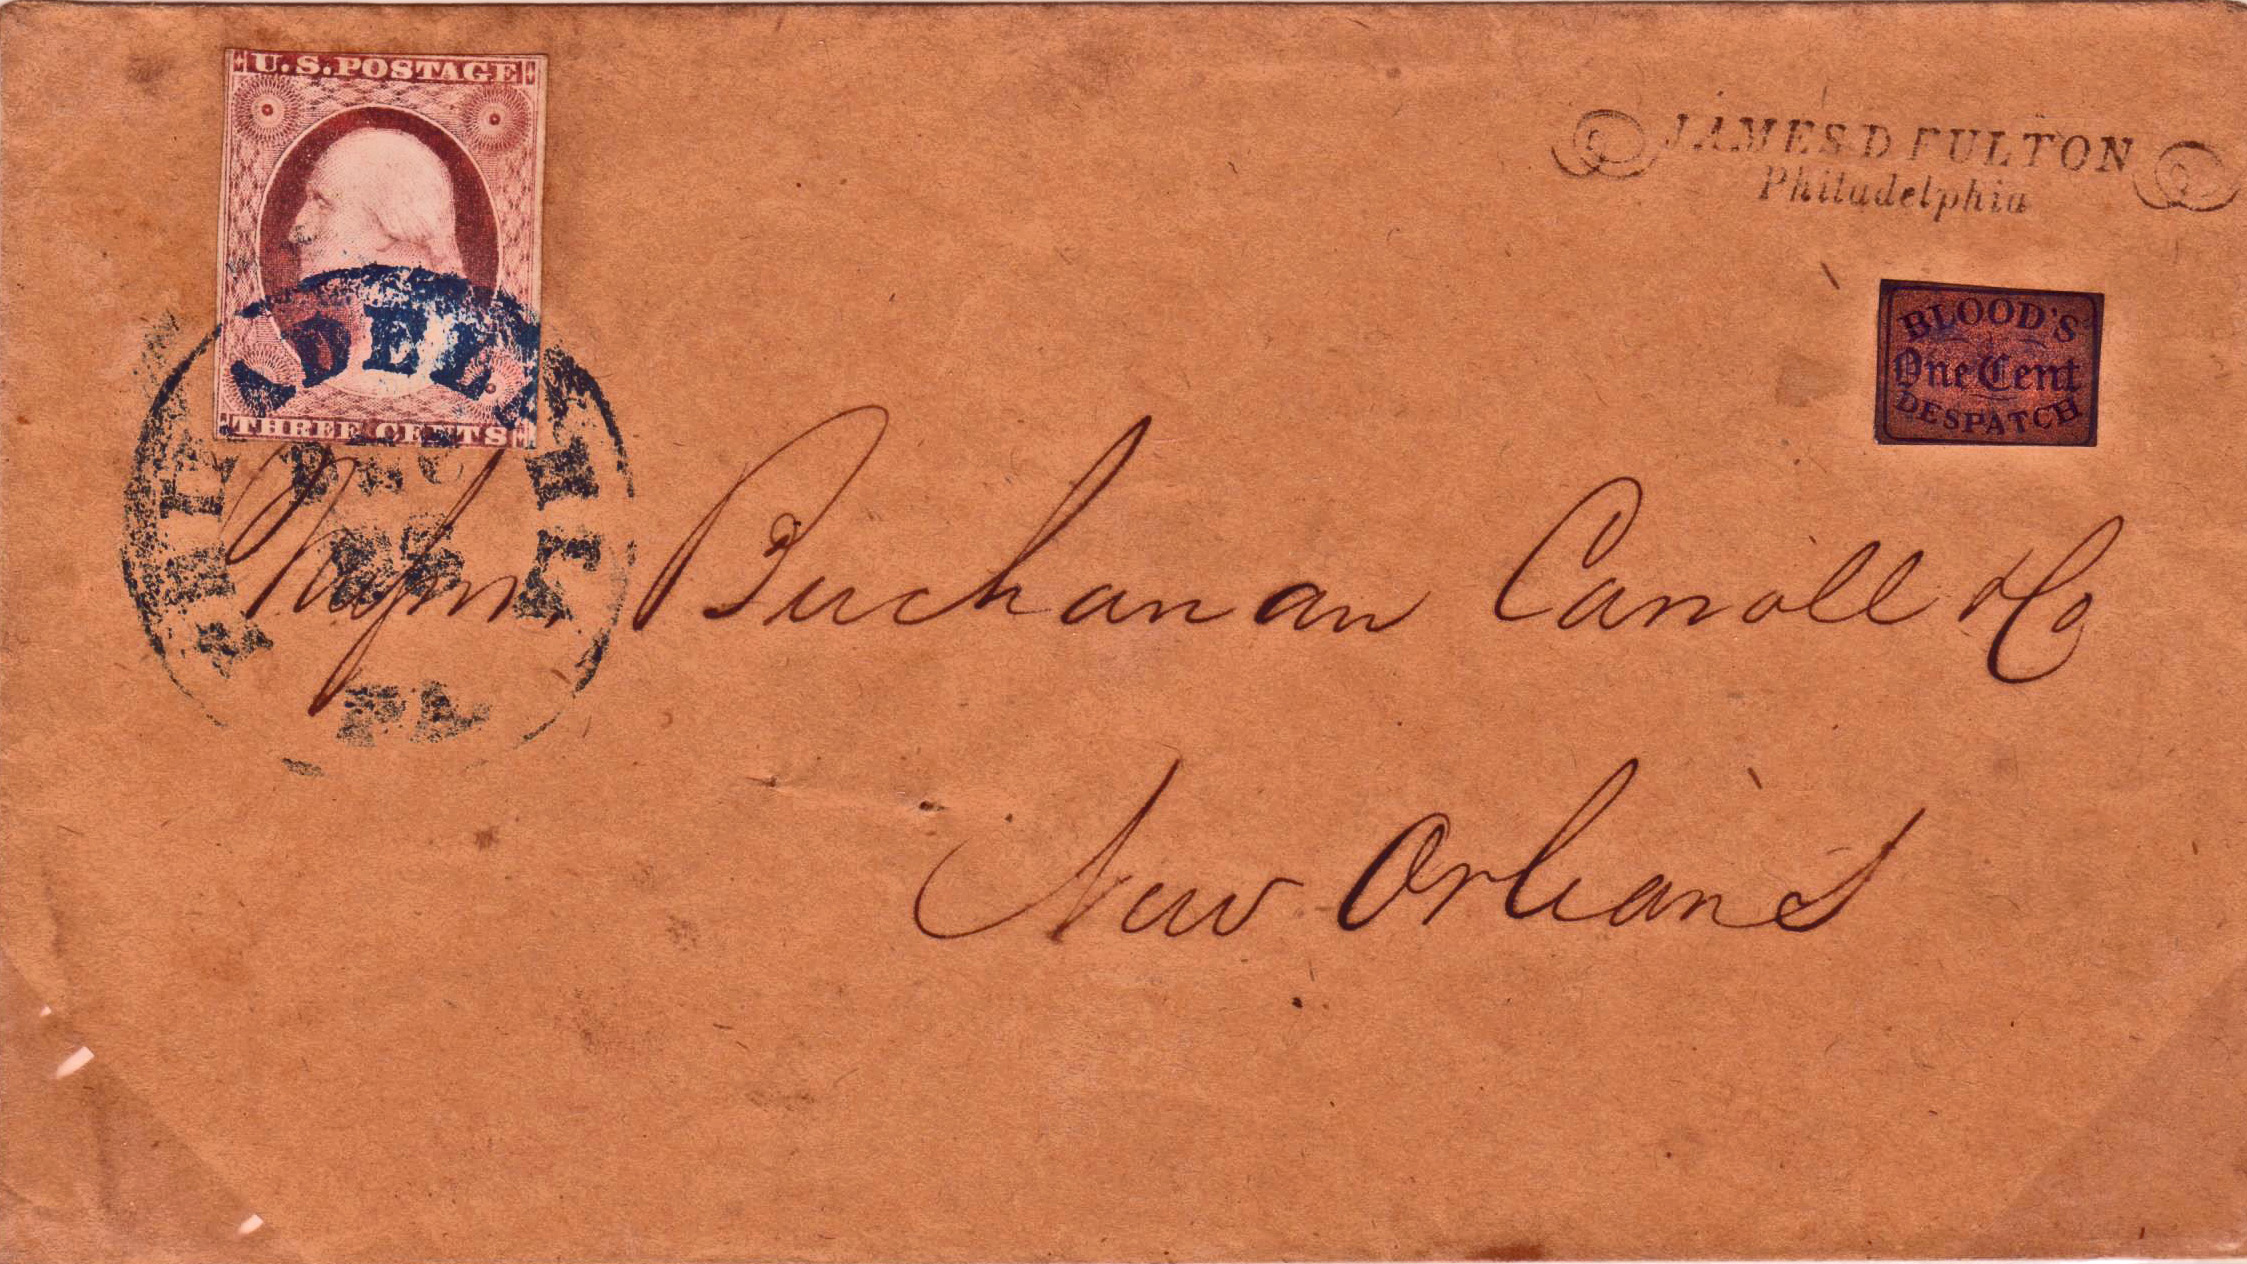 U.S. POSTAGE
THREE CENTS
PHILADELPHIA
PA
JAMES D FULTON
Philadelphia
BLOOD'S
One Cent
DESPATCH
Buchanan Carroll & Co
New Orleans